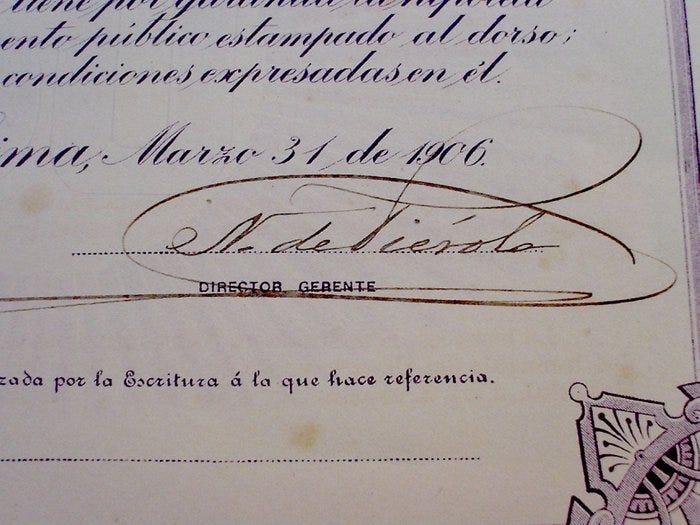 tiene por garantía la hipoteca
ento público estampado al dorso;
condiciones expresadas en él.
ima, Marzo 31 de 1906.
N. de Piérola
DIRECTOR GERENTE
rada por la Escritura á la que hace referencia.